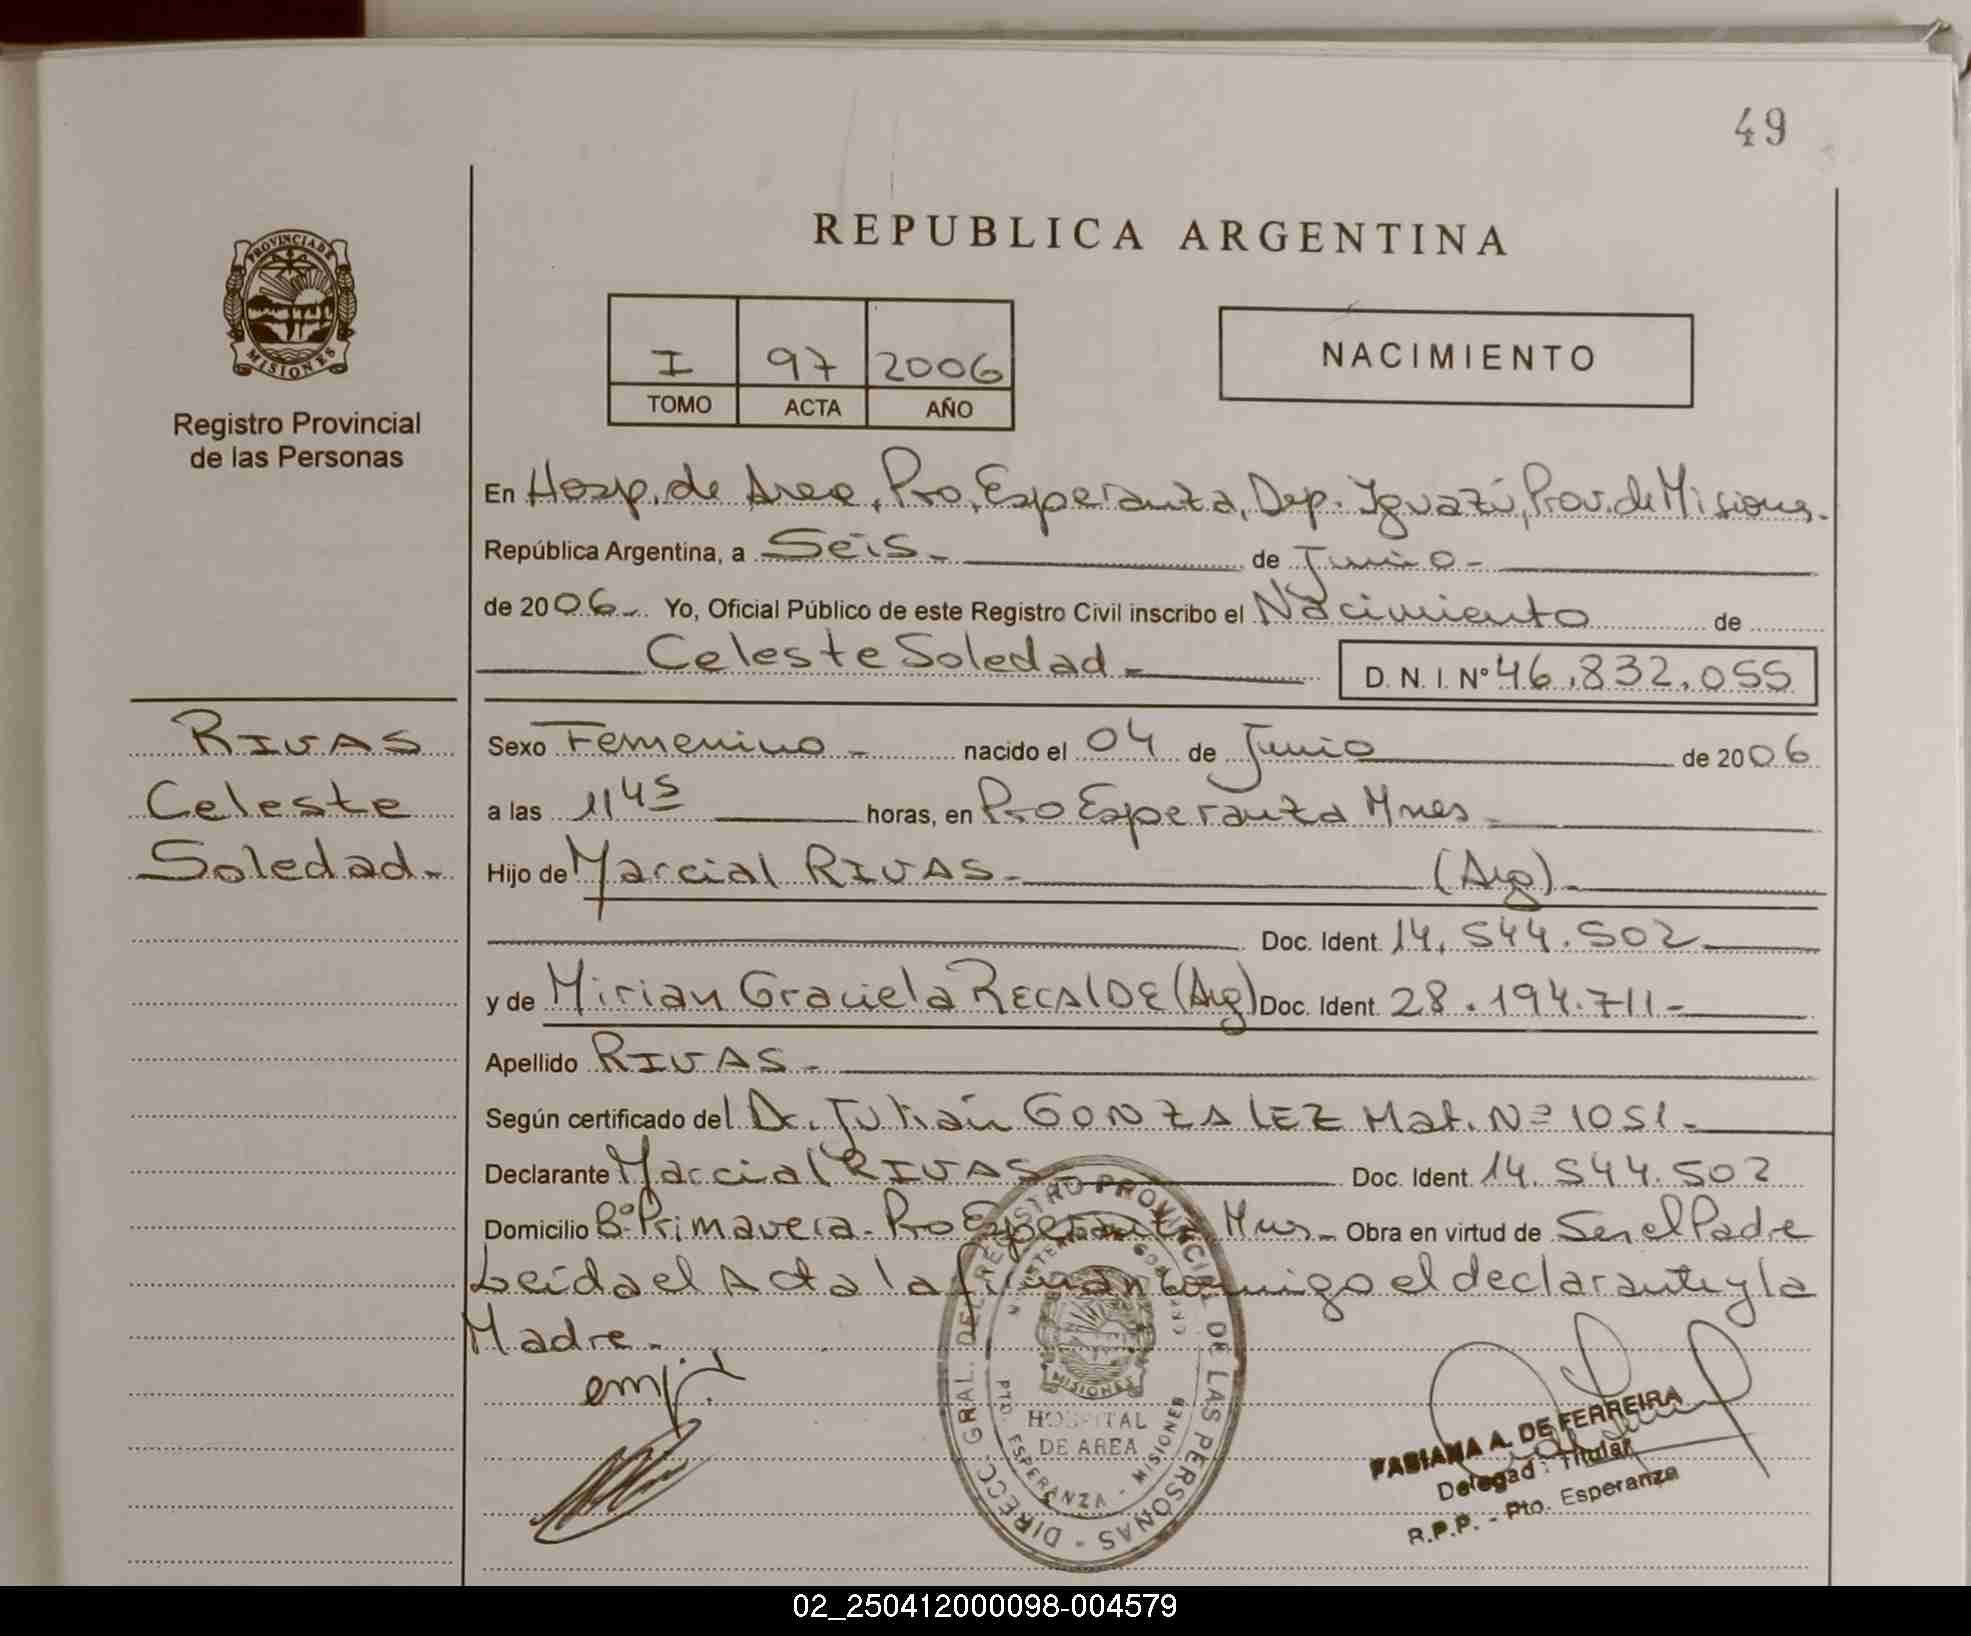 49
REPUBLICA ARGENTINA
PROVINCIA DE
MISIONES
I 97 2006
TOMO ACTA AÑO
NACIMIENTO
Registro Provincial
de las Personas
En Hosp. de Area, Pto. Esperanza, Dep. Iguazú, Prov. de Misiones.
República Argentina, a Seis- de Junio-
de 2006- Yo, Oficial Público de este Registro Civil inscribo el Nacimiento de
Celeste Soledad- D. N. I. N° 46.832.055
RIVAS
Celeste
Soledad-
Sexo Femenino- nacido el 04 de Junio de 2006
a las 11 45 horas, en Pto Esperanza Mnes-
Hijo de Marcial RIVAS- (Arg)-
Doc. Ident. 14.544.502
y de Mirian Graciela RECALDE (Arg) Doc. Ident. 28.194.711-
Apellido RIVAS-
Según certificado del Dr. Julián GONZALEZ Mat. Nº 1051-
Declarante Marcial RIVAS Doc. Ident. 14.544.502
Domicilio Bº Primavera- Pto Esperanza Mns- Obra en virtud de Ser el Padre
Leída el Acta la firman conmigo el declarante y la
Madre-
DIRECC. GRAL. DEL REGISTRO PROVINCIAL DE LAS PERSONAS -
MISIONES
HOSPITAL
DE AREA
PTO. ESPERANZA - MISIONES
FABIANA A. DE FERREIRA
Delegad Titular
R.P.P. - Pto. Esperanza
02_250412000098-004579